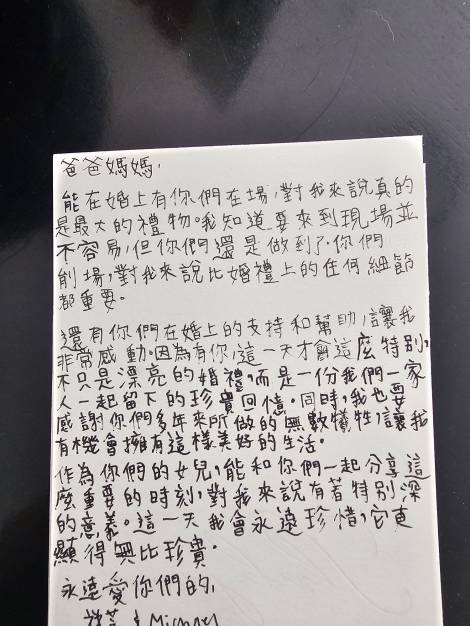 爸爸媽媽,
能在婚上有你們在場,對我來說真的
是最大的禮物。我知道要來到現場並
不容易,但你們還是做到了。你們
到場,對我來說比婚禮上的任何細節
都重要。
還有你們在婚上的支持和幫助,讓我
非常感動。因為有你,這一天才會這麼特別,
不只是漂亮的婚禮,而是一份我們一家
人一起留下的珍貴回憶。同時,我也要
感謝你們多年來所做的無數犧牲,讓我
有機會擁有這樣美好的生活。
作為你們的女兒,能和你們一起分享這
麼重要的時刻,對我來說有著特別深
的意義。這一天我會永遠珍惜,它更
顯得無比珍貴。
永遠愛你們的,
& Michael